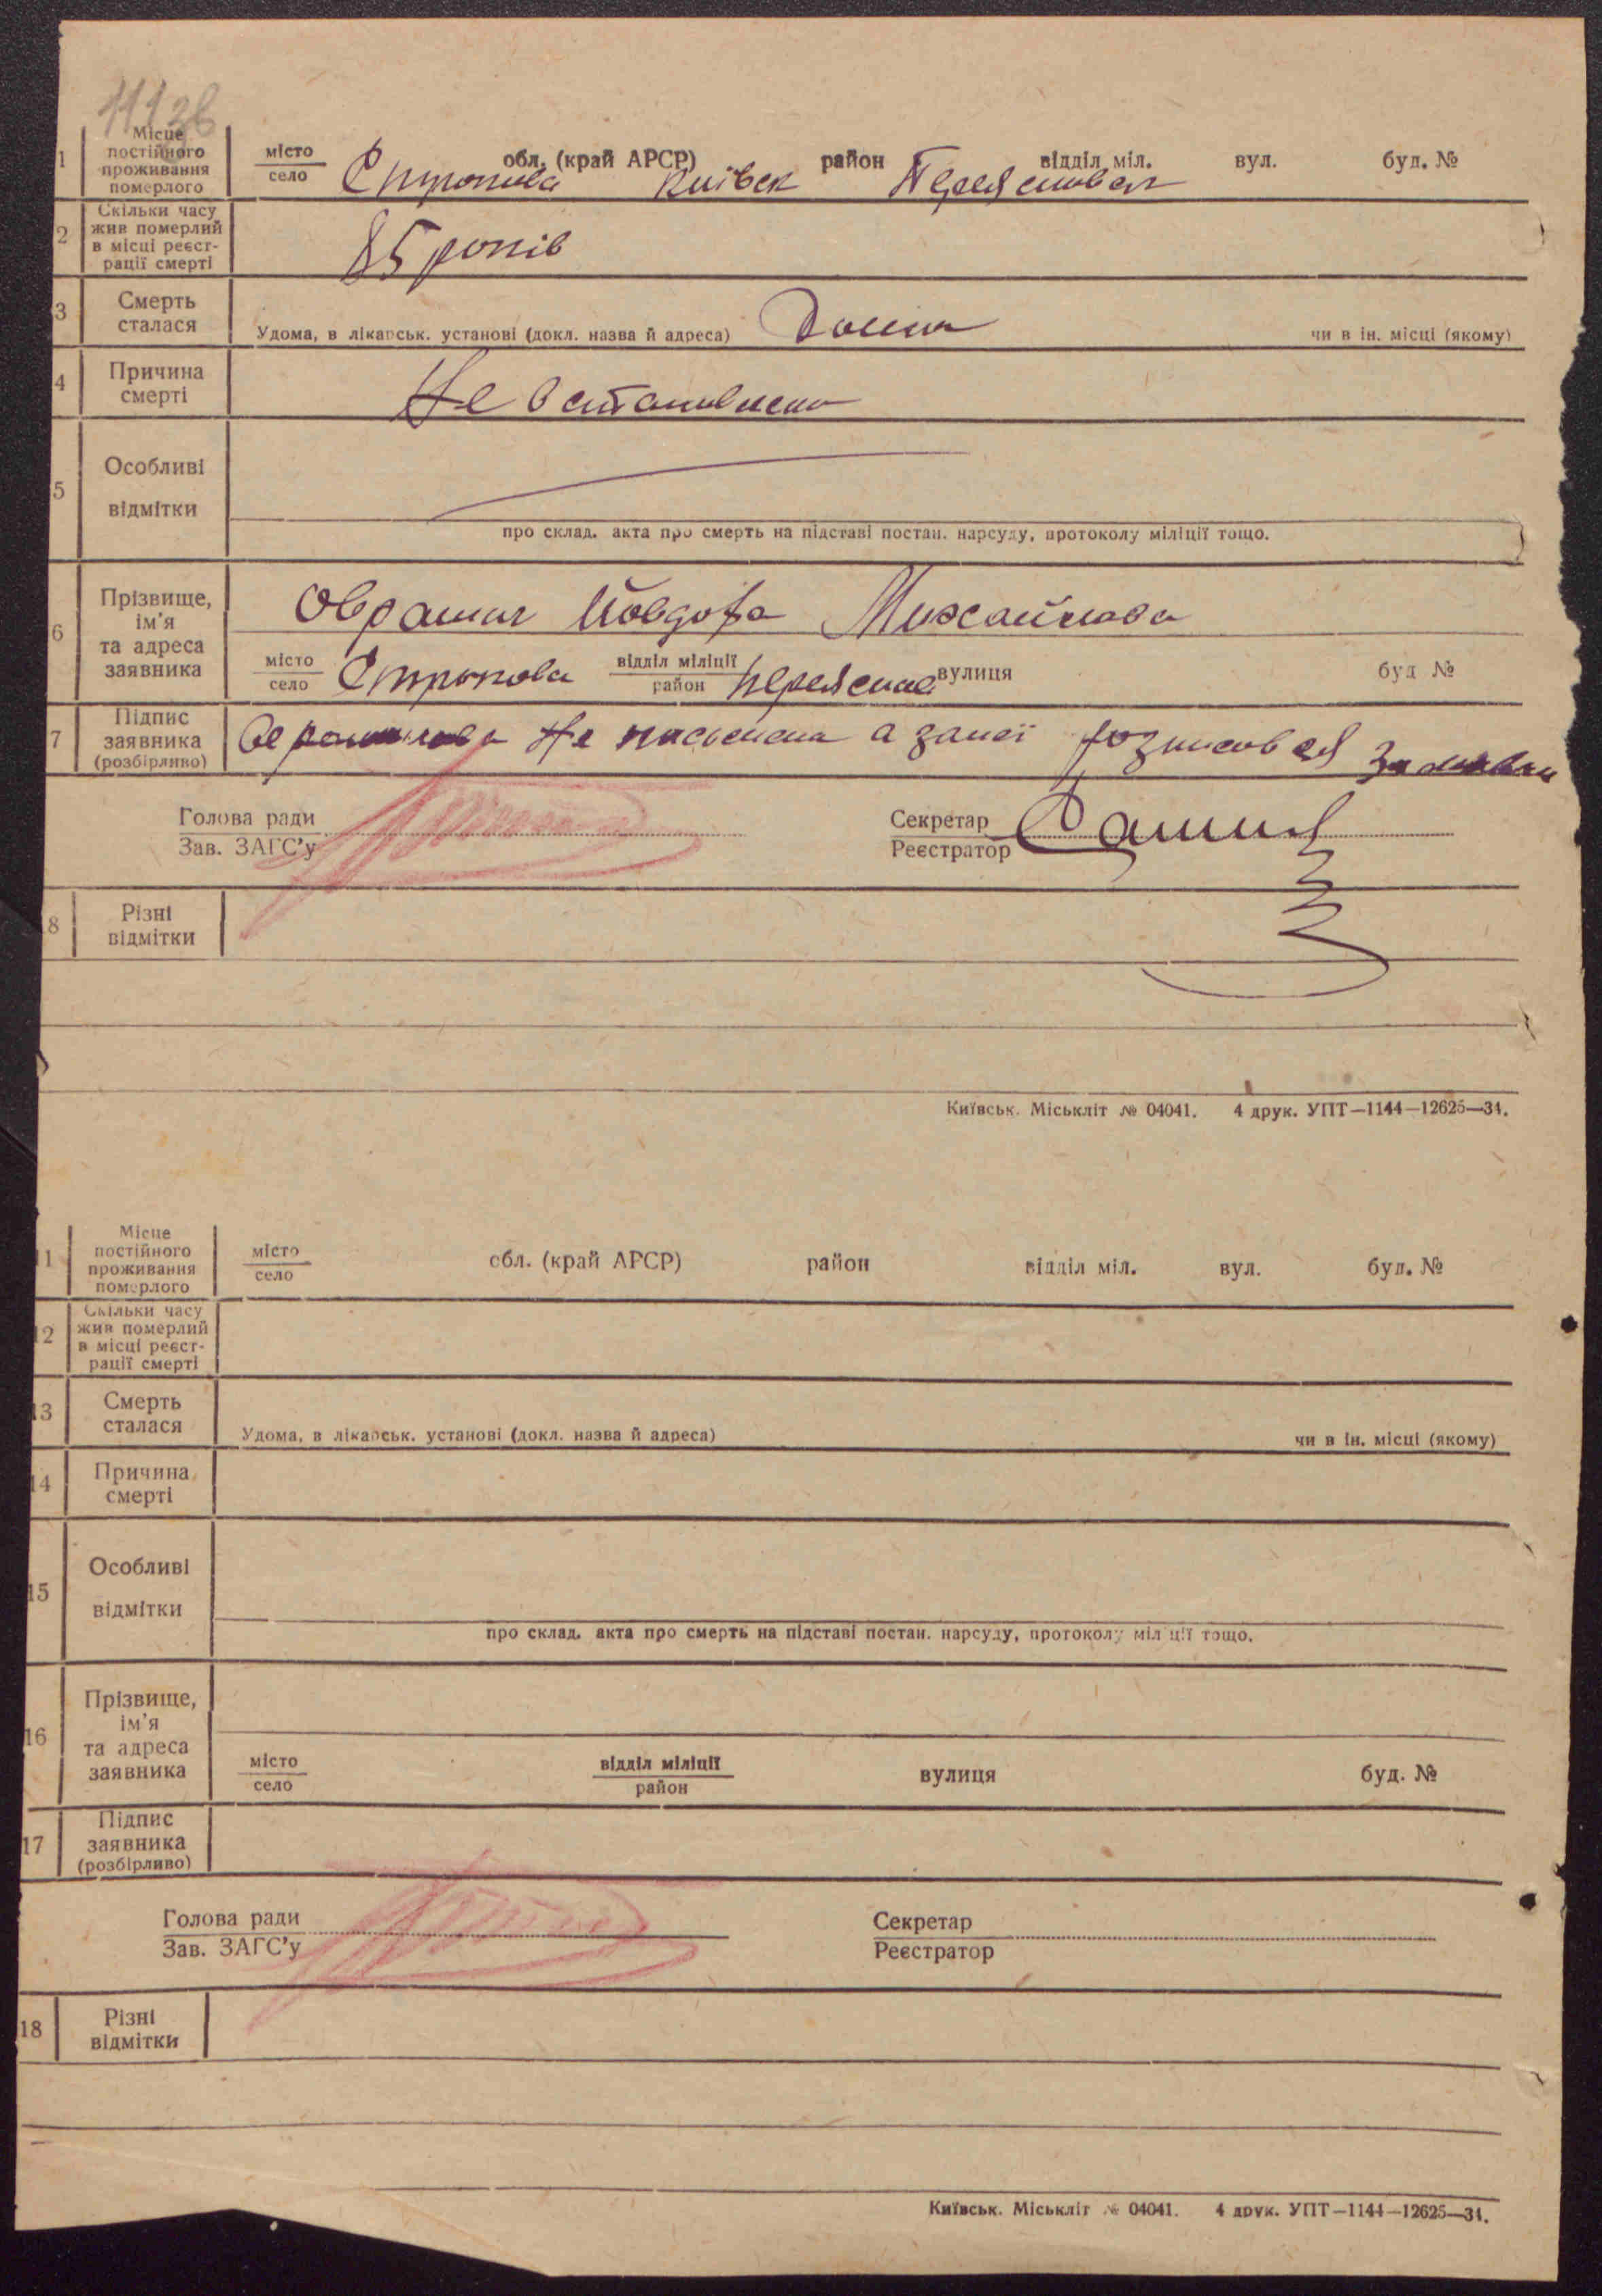 1 Місце постійного проживання померлого
місто село Строкова обл. (край АРСР) Київск район Переяславск відділ міл. вул. буд. №
2 Скільки часу жив померлий в місці реєстрації смерті
85 років
3 Смерть сталася
Удома, в лікарськ. установі (докл. назва й адреса) Дома чи в ін. місці (якому)
4 Причина смерті
Не встановлено
5 Особливі відмітки
про склад. акта про смерть на підставі постан. нарсуду, протоколу міліції тощо.
6 Прізвище, ім'я та адреса заявника
Михайловa
місто село Строкова відділ міліції район Переяслав вулиця буд №
7 Підпис заявника (розбірливо)
Не письмена а занеї розписовся
Голова ради
Зав. ЗАГС'у
Секретар
Реєстратор
8 Різні відмітки
Київськ. Міськліт № 04041. 4 друк. УПТ—1144—12625—34.
11 Місце постійного проживання померлого
місто село обл. (край АРСР) район відділ міл. вул. буд. №
12 Скільки часу жив померлий в місці реєстрації смерті
13 Смерть сталася
Удома, в лікарськ. установі (докл. назва й адреса) чи в ін. місці (якому)
14 Причина смерті
15 Особливі відмітки
про склад. акта про смерть на підставі постан. нарсуду, протоколу міліції тощо.
16 Прізвище, ім'я та адреса заявника
місто село відділ міліції район вулиця буд. №
17 Підпис заявника (розбірливо)
Голова ради
Зав. ЗАГС'у
Секретар
Реєстратор
18 Різні відмітки
Київськ. Міськліт № 04041. 4 друк. УПТ—1144—12625—34.